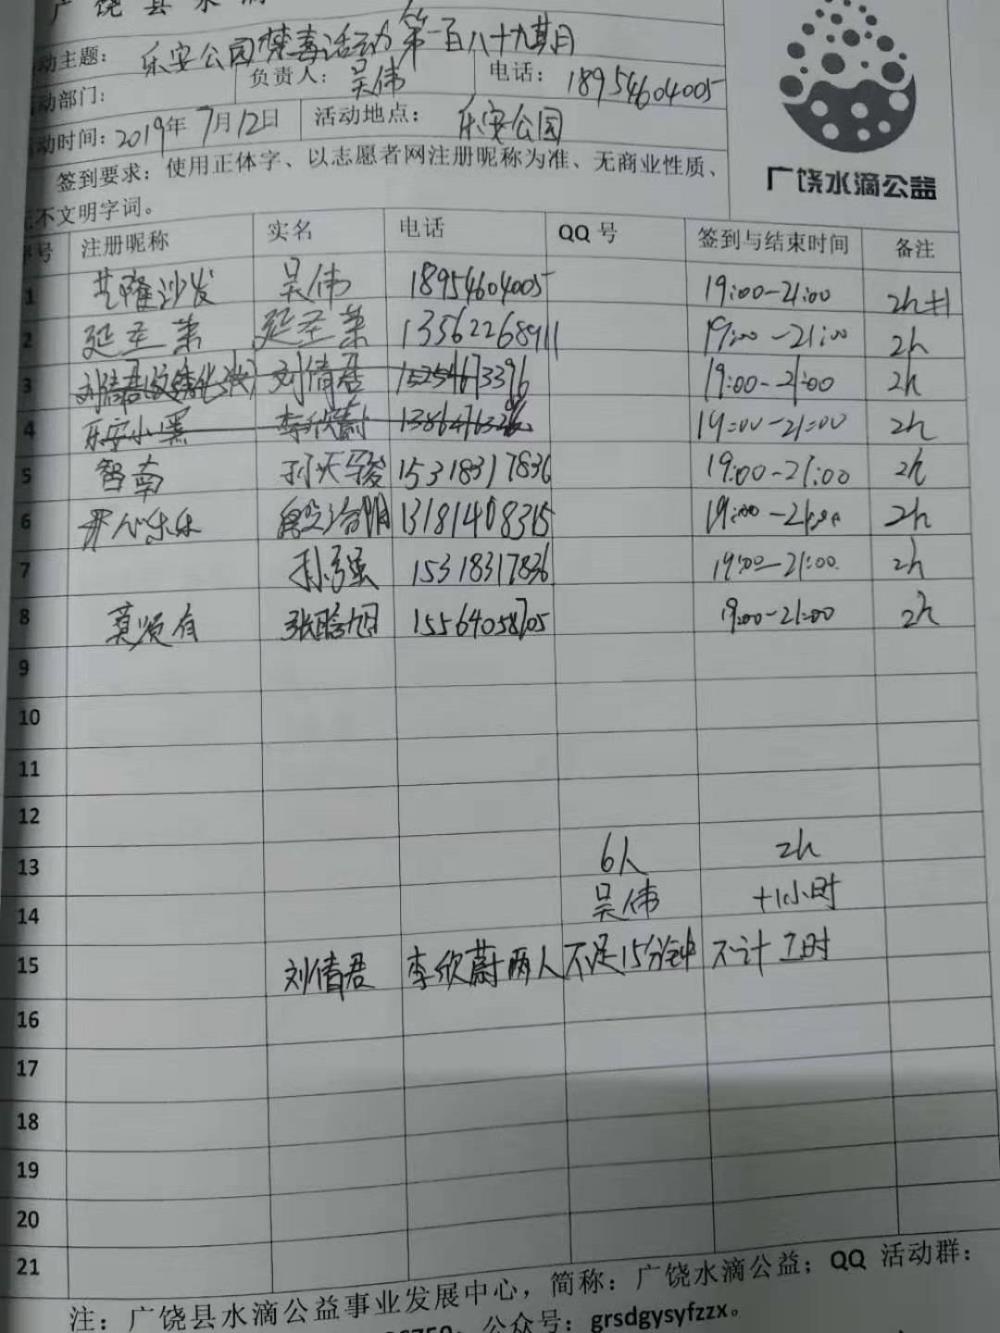 广饶县水滴
动主题：乐安公园禁毒活动第一百八十九期
动部门： 负责人：吴伟 电话：18954604005
动时间：2019年7月12日 活动地点：乐安公园
签到要求：使用正体字、以志愿者网注册昵称为准、无商业性质、
不文明字词。
广饶水滴公益
号 注册昵称 实名 电话 QQ号 签到与结束时间 备注
1 艺隆沙发 吴伟 18954604005 19:00-21:00 2h+1
2 延圣 延圣 13562268911 19:00-21:00 2h
3 刘倩君 刘倩君 15254673396 19:00-21:00 2h
4 乐安小黑 李欣蔚 19:00-21:00 2h
5 智南 孙天骏 15318317836 19:00-21:00 2h
6 开心乐乐 13181408315 19:00-21:00 2h
7 孙强 15318317836 19:00-21:00 2h
8 莫须有 张晗旭 15564058705 19:00-21:00 2h
9
10
11
12
13 6人 2h
14 吴伟 +1小时
15 刘倩君 李欣蔚两人不足15分钟 不计工时
16
17
18
19
20
21
注：广饶县水滴公益事业发展中心，简称：广饶水滴公益；QQ 活动群：
公众号：grsdgysyfzzx。